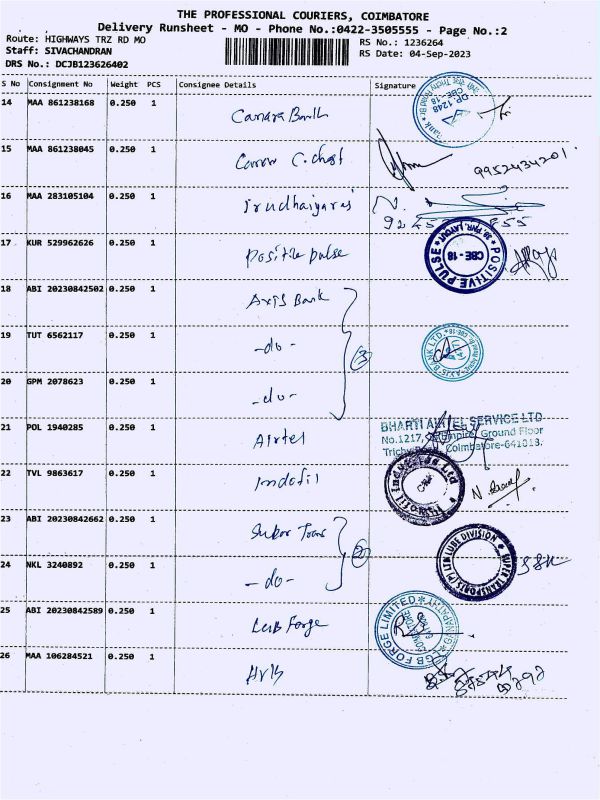 THE PROFESSIONAL COURIERS, COIMBATORE
Delivery Runsheet - MO - Phone No.:0422-3505555 - Page No.:2
Route: HIGHWAYS TRZ RD MO
RS No.: 1236264
Staff: SIVACHANDRAN
RS Date: 04-Sep-2023
DRS No.: DCJB123626402
S No Consignment No Weight PCS Consignee Details Signature
14 MAA 861238168 0.250 1 Canara Bank
DP 1248
CBE - 18
15 MAA 861238045 0.250 1 Canara C. chest 9952434201
16 MAA 283105104 0.250 1 Irudhaiyaraj
17 KUR 529962626 0.250 1 Positive pulse
POSITIVE PULSE CBE - 18
18 ABI 20230842502 0.250 1 Axis Bank
19 TUT 6562117 0.250 1 -do- 3
AXIS BANK LTD.
20 GPM 2078623 0.250 1 -do-
21 POL 1940285 0.250 1 Airtel
BHARTI AIRTEL SERVICE LTD
No.1217, Empire, Ground Floor
Trichy Road, Coimbatore-641018.
22 TVL 9863617 0.250 1 Indofil
Indofil Industries Ltd
23 ABI 20230842662 0.250 1 Super Trans
24 NKL 3240892 0.250 1 -do- 2
SUPER TRANSPORTS (P) LTD LUBE DIVISION
25 ABI 20230842589 0.250 1 LGB Forge
LGB FORGE LIMITED
26 MAA 106284521 0.250 1